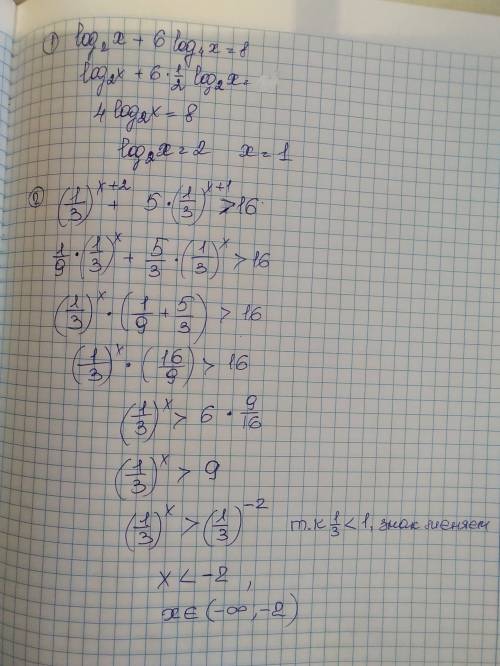 ① log₂x + 6 log₄x = 8
log₂x + 6 · 1/2 log₂x =
4 log₂x = 8
log₂x = 2 x = 1
② (1/3)^(x+2) + 5 · (1/3)^(x+1) > 16
1/9 · (1/3)^x + 5/3 · (1/3)^x > 16
(1/3)^x · (1/9 + 5/3) > 16
(1/3)^x · (16/9) > 16
(1/3)^x > 6 · 9/16
(1/3)^x > 9
(1/3)^x > (1/3)^-2 т.к 1/3 < 1, знак меняем
x < -2 ,
x ∈ (-∞, -2)